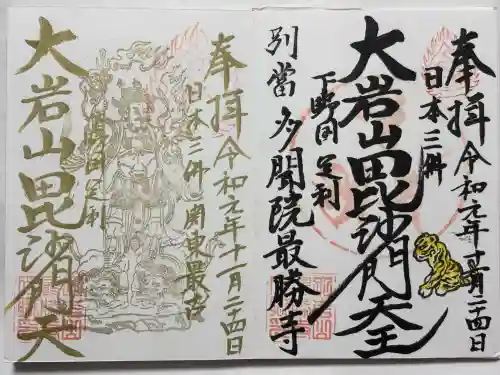 奉拝 令和元年十一月二十四日
日本三体
大岩山毘沙門天王
下野国 足利
別當 多聞院最勝寺
奉拝 令和元年十一月二十四日
日本三体 関東最古
下野国 足利
大岩山毘沙門天